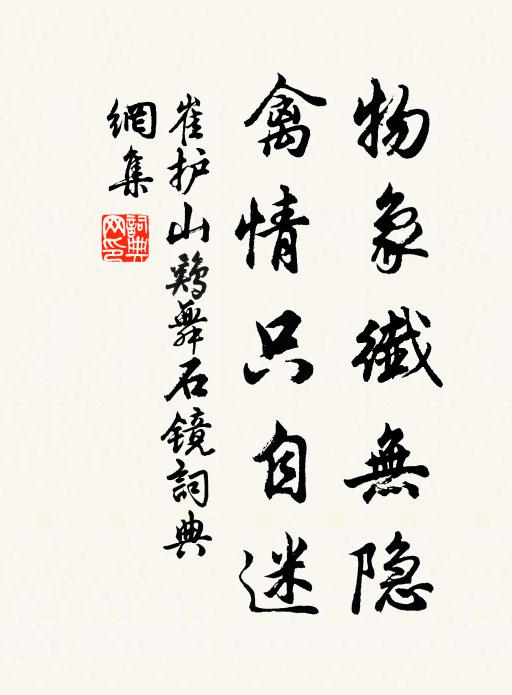 物象纖無隐
禽情只自迷
崔护山鷄舞石镜詞典
網集
詞典網印